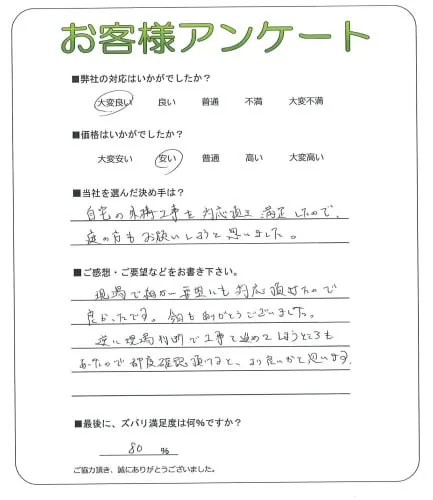 お客様アンケート
■弊社の対応はいかがでしたか？
大変良い 良い 普通 不満 大変不満
■価格はいかがでしたか？
大変安い 安い 普通 高い 大変高い
■当社を選んだ決め手は？
自宅の外構工事を対応頂き満足したので、
庭の方もお願いしようと思いました。
■ご感想・ご要望などをお書き下さい。
現場で細かい要望にも対応頂けたので
良かったです。今回もありがとうございました。
逆に現場判断で工事を進めてしまうところも
あったので都度確認頂けると、より良いかと思います。
■最後に、ズバリ満足度は何％ですか？
80 ％
ご協力頂き、誠にありがとうございました。